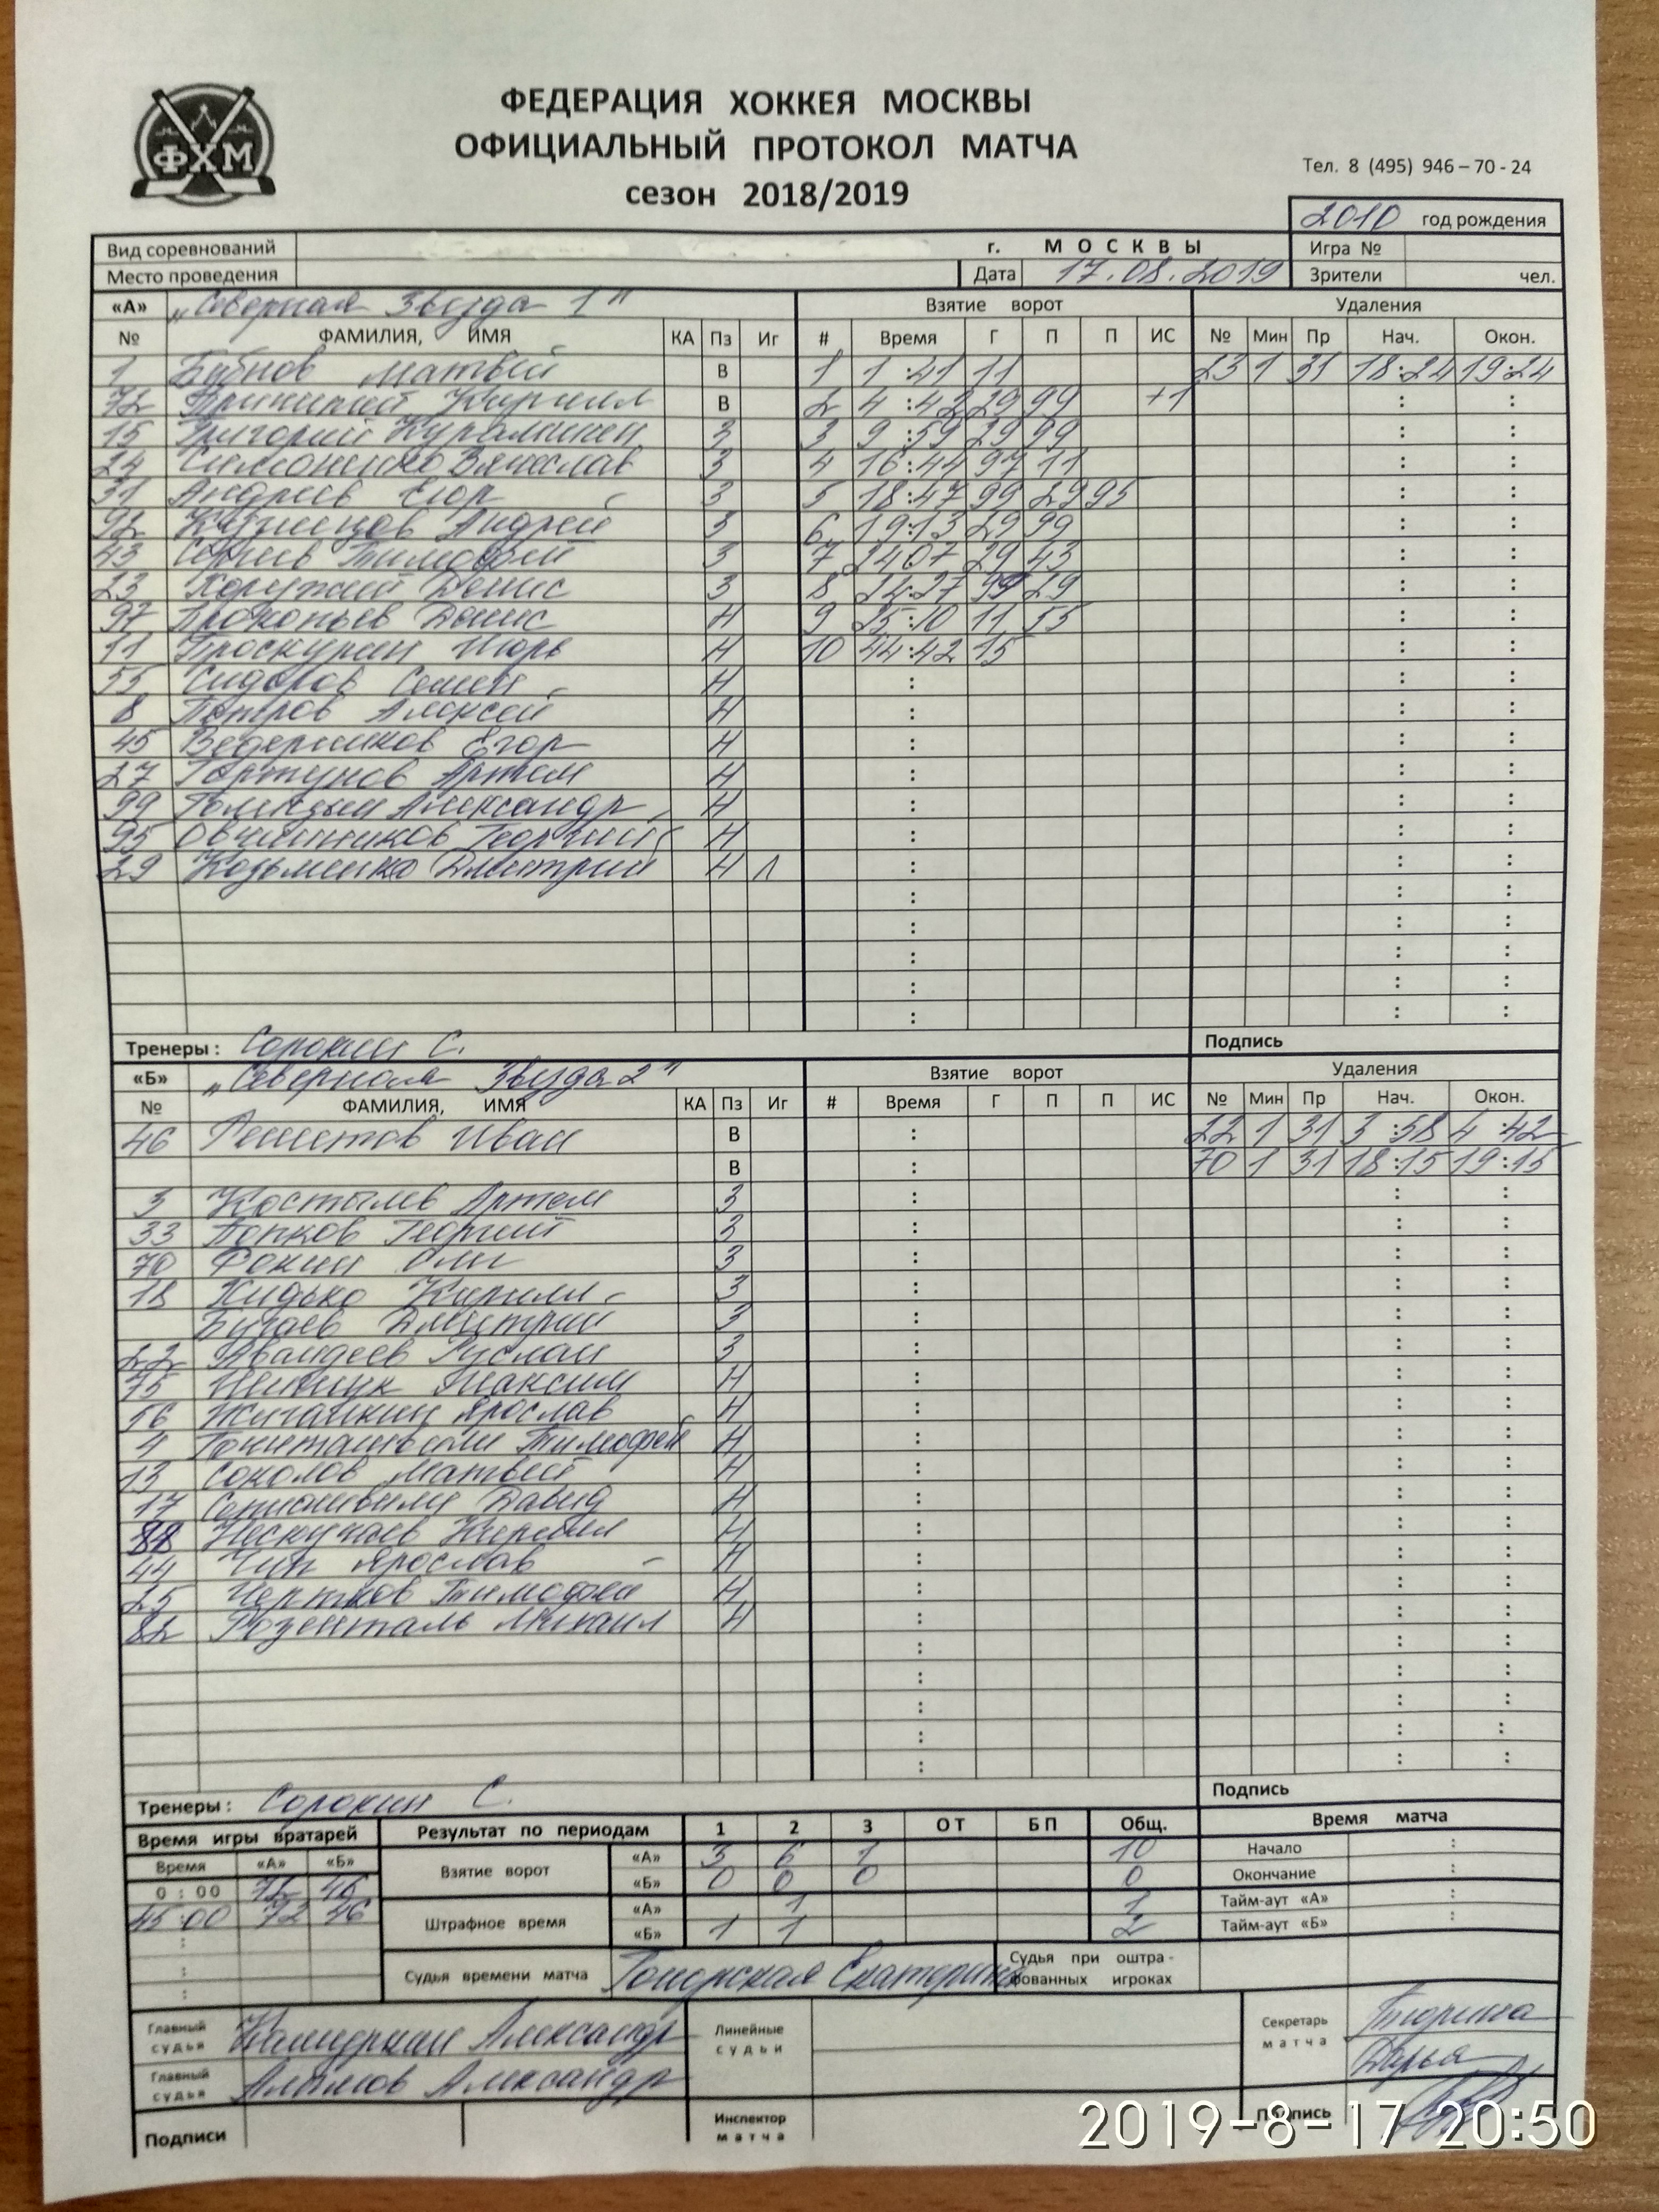 ФХМ
ФЕДЕРАЦИЯ ХОККЕЯ МОСКВЫ
ОФИЦИАЛЬНЫЙ ПРОТОКОЛ МАТЧА
сезон 2018/2019
Тел. 8 (495) 946 – 70 - 24
2010 год рождения
Вид соревнований г. М О С К В Ы Игра №
Место проведения Дата 17.08.2019 Зрители чел.
«А» „Северная Звезда 1" Взятие ворот Удаления
№ ФАМИЛИЯ, ИМЯ КА Пз Иг # Время Г П П ИС № Мин Пр Нач. Окон.
1 Бубнов Матвей В 1 1:41 11 23 1 31 18:24 19:24
72 Кирилл В 2 4:42 29 99 +1 : :
15 Григорий З 3 9:59 29 99 : :
24 Симоненко Вячеслав З 4 16:44 97 11 : :
31 Андреев Егор З 5 18:47 99 29 95 : :
92 Кузнецов Андрей З 6 19:13 29 99 : :
43 Тимофей З 7 24 07 29 43 : :
23 Хоружий Денис З 8 24:27 99 29 : :
97 Прокопьев Денис Н 9 25:10 11 55 : :
11 Проскурин Игорь Н 10 44:42 15 : :
55 Сидоров Семен Н : : :
8 Петров Алексей Н : : :
45 Ведерников Егор Н : : :
27 Артем Н : : :
99 Голицын Александр Н : : :
95 Овчинников Георгий Н : : :
29 Козьменко Дмитрий Н Л : : :
: : :
: : :
: : :
: : :
: : :
Тренеры : Сорокин С. Подпись
«Б» „Северная Звезда 2" Взятие ворот Удаления
№ ФАМИЛИЯ, ИМЯ КА Пз Иг # Время Г П П ИС № Мин Пр Нач. Окон.
46 Решетов Иван В : 22 1 31 3:58 4:42
В : 70 1 31 18:15 19:15
3 Костылев Артем З : : :
33 Попков Георгий З : : :
70 Фокин З : : :
18 Кирилл З : : :
Бугаев Дмитрий З : : :
22 Авандеев Руслан З : : :
75 Максим Н : : :
16 Ярослав Н : : :
4 Тимофей Н : : :
13 Соколов Матвей Н : : :
17 Давид Н : : :
88 Нескучаев Кирилл Н : : :
44 Чуп Ярослав Н : : :
25 Чертков Тимофей Н : : :
82 Розенталь Михаил Н : : :
: : :
: : :
: : :
: : :
: : :
Тренеры : Сорокин С. Подпись
Время игры вратарей Результат по периодам 1 2 3 О Т Б П Общ. Время матча
Время «А» «Б» Взятие ворот «А» 3 6 1 10 Начало :
0 : 00 72 46 «Б» 0 0 0 0 Окончание :
45:00 72 46 Штрафное время «А» 1 1 Тайм-аут «А» :
: «Б» 1 1 2 Тайм-аут «Б» :
: Судья времени матча Екатерина Судья при оштра-
: фованных игроках
Главный судья Александр Линейные судьи Секретарь матча Тюрина
Главный судья Алымов Александр Дарья
Подписи Инспектор матча Подпись
2019-8-17 20:50